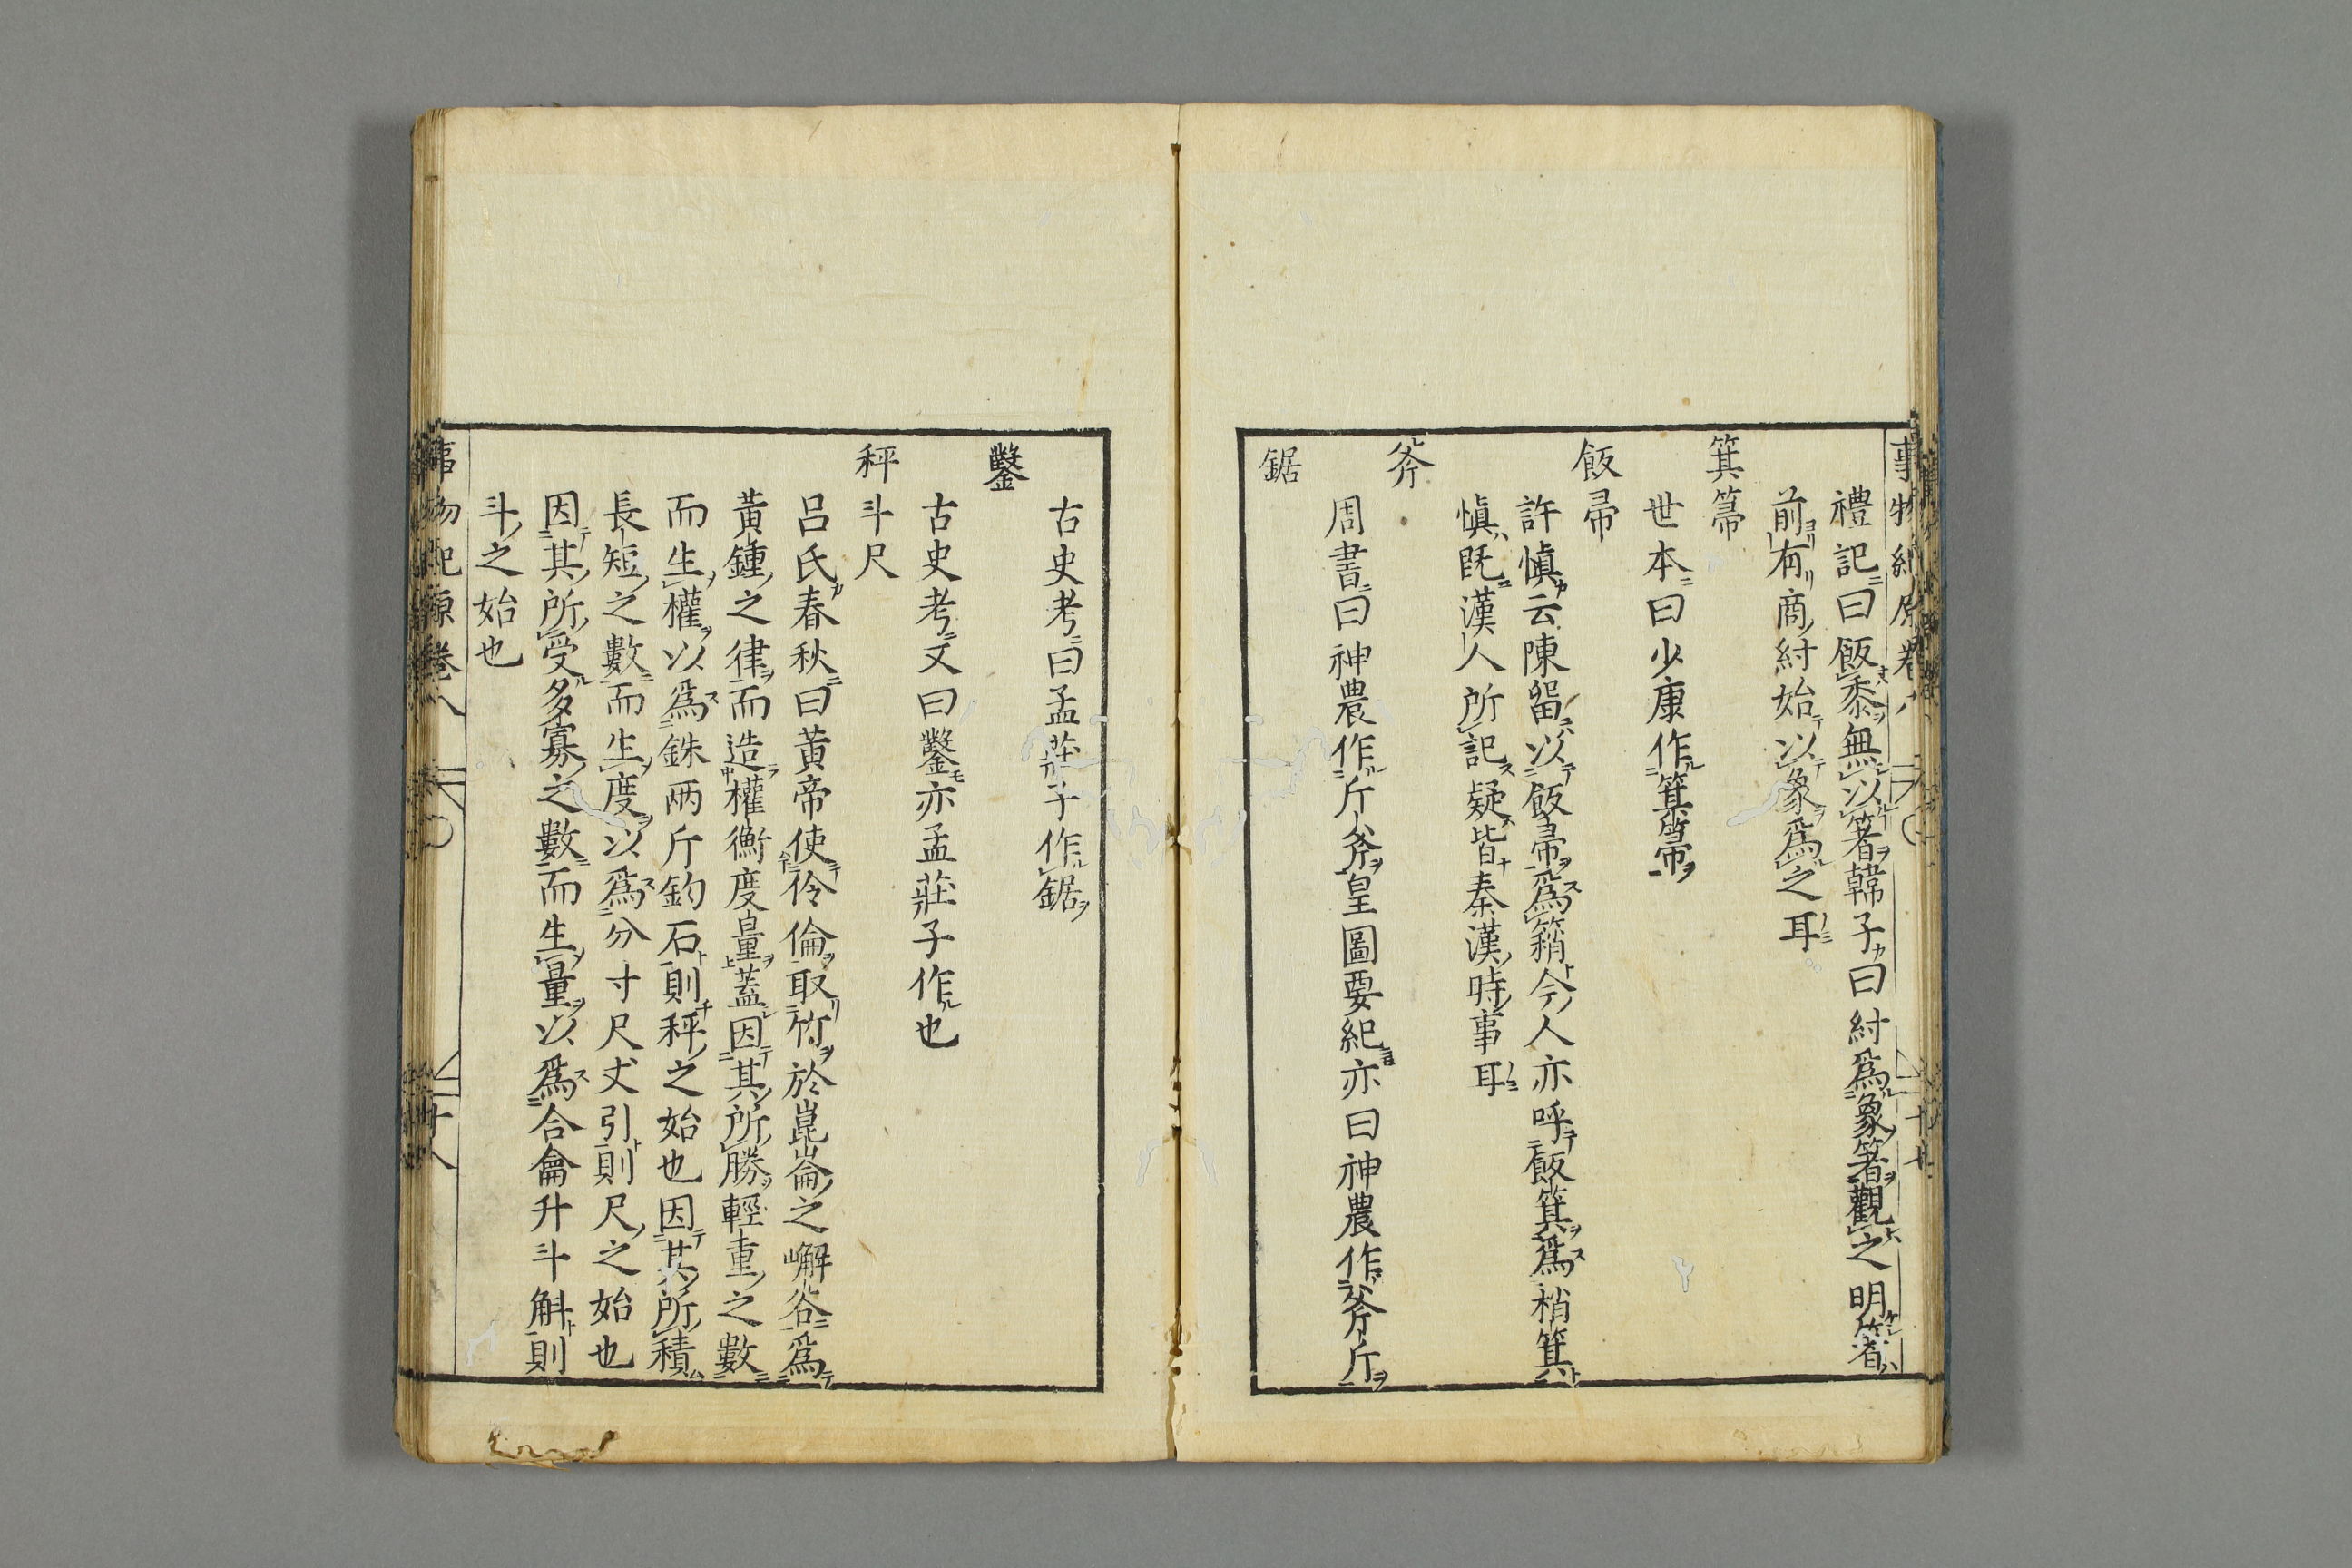 事物紀原卷八 十七
禮記曰飯黍無以箸韓子曰紂爲象箸觀之明箸
前有商紂始以象爲之耳
箕箒
世本曰少康作箕箒
飯帚
許愼云陳留以飯帚爲䈰今人亦呼飯箕爲梢箕
愼旣漢人所記疑皆秦漢時事耳
斧
周書曰神農作斤斧皇圖要紀亦曰神農作斧斤
鋸
古史考曰孟莊子作鋸
鑿
古史考又曰鑿亦孟莊子作也
秤斗尺
呂氏春秋曰黃帝使伶倫取竹於崑崙之嶰谷爲
黃鍾之律而造權衡度量蓋因其所勝輕重之數
而生權以爲銖兩斤鈞石則秤之始也因其所積
長短之數而生度以爲分寸尺丈引則尺之始也
因其所受多寡之數而生量以爲合龠升斗斛則
斗之始也
事物紀原卷八 十八